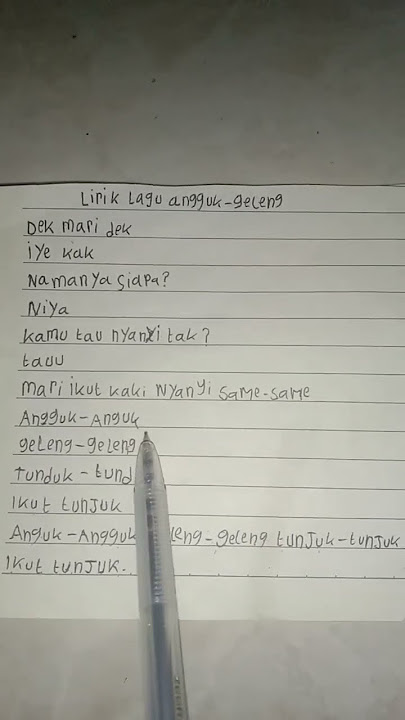 Lirik Lagu angguk-geleng
Dek mari dek
iye kak
Namanya Siapa?
Niya
kamu tau nyanyi tak?
tauu
mari ikut kaki Nyanyi same-same
Angguk-Anguk
geleng-geleng
tunduk - tund
Ikut tunjuk
Anguk-Angguk leng-geleng tunjuk-tunjuk
Ikut tunjuk.